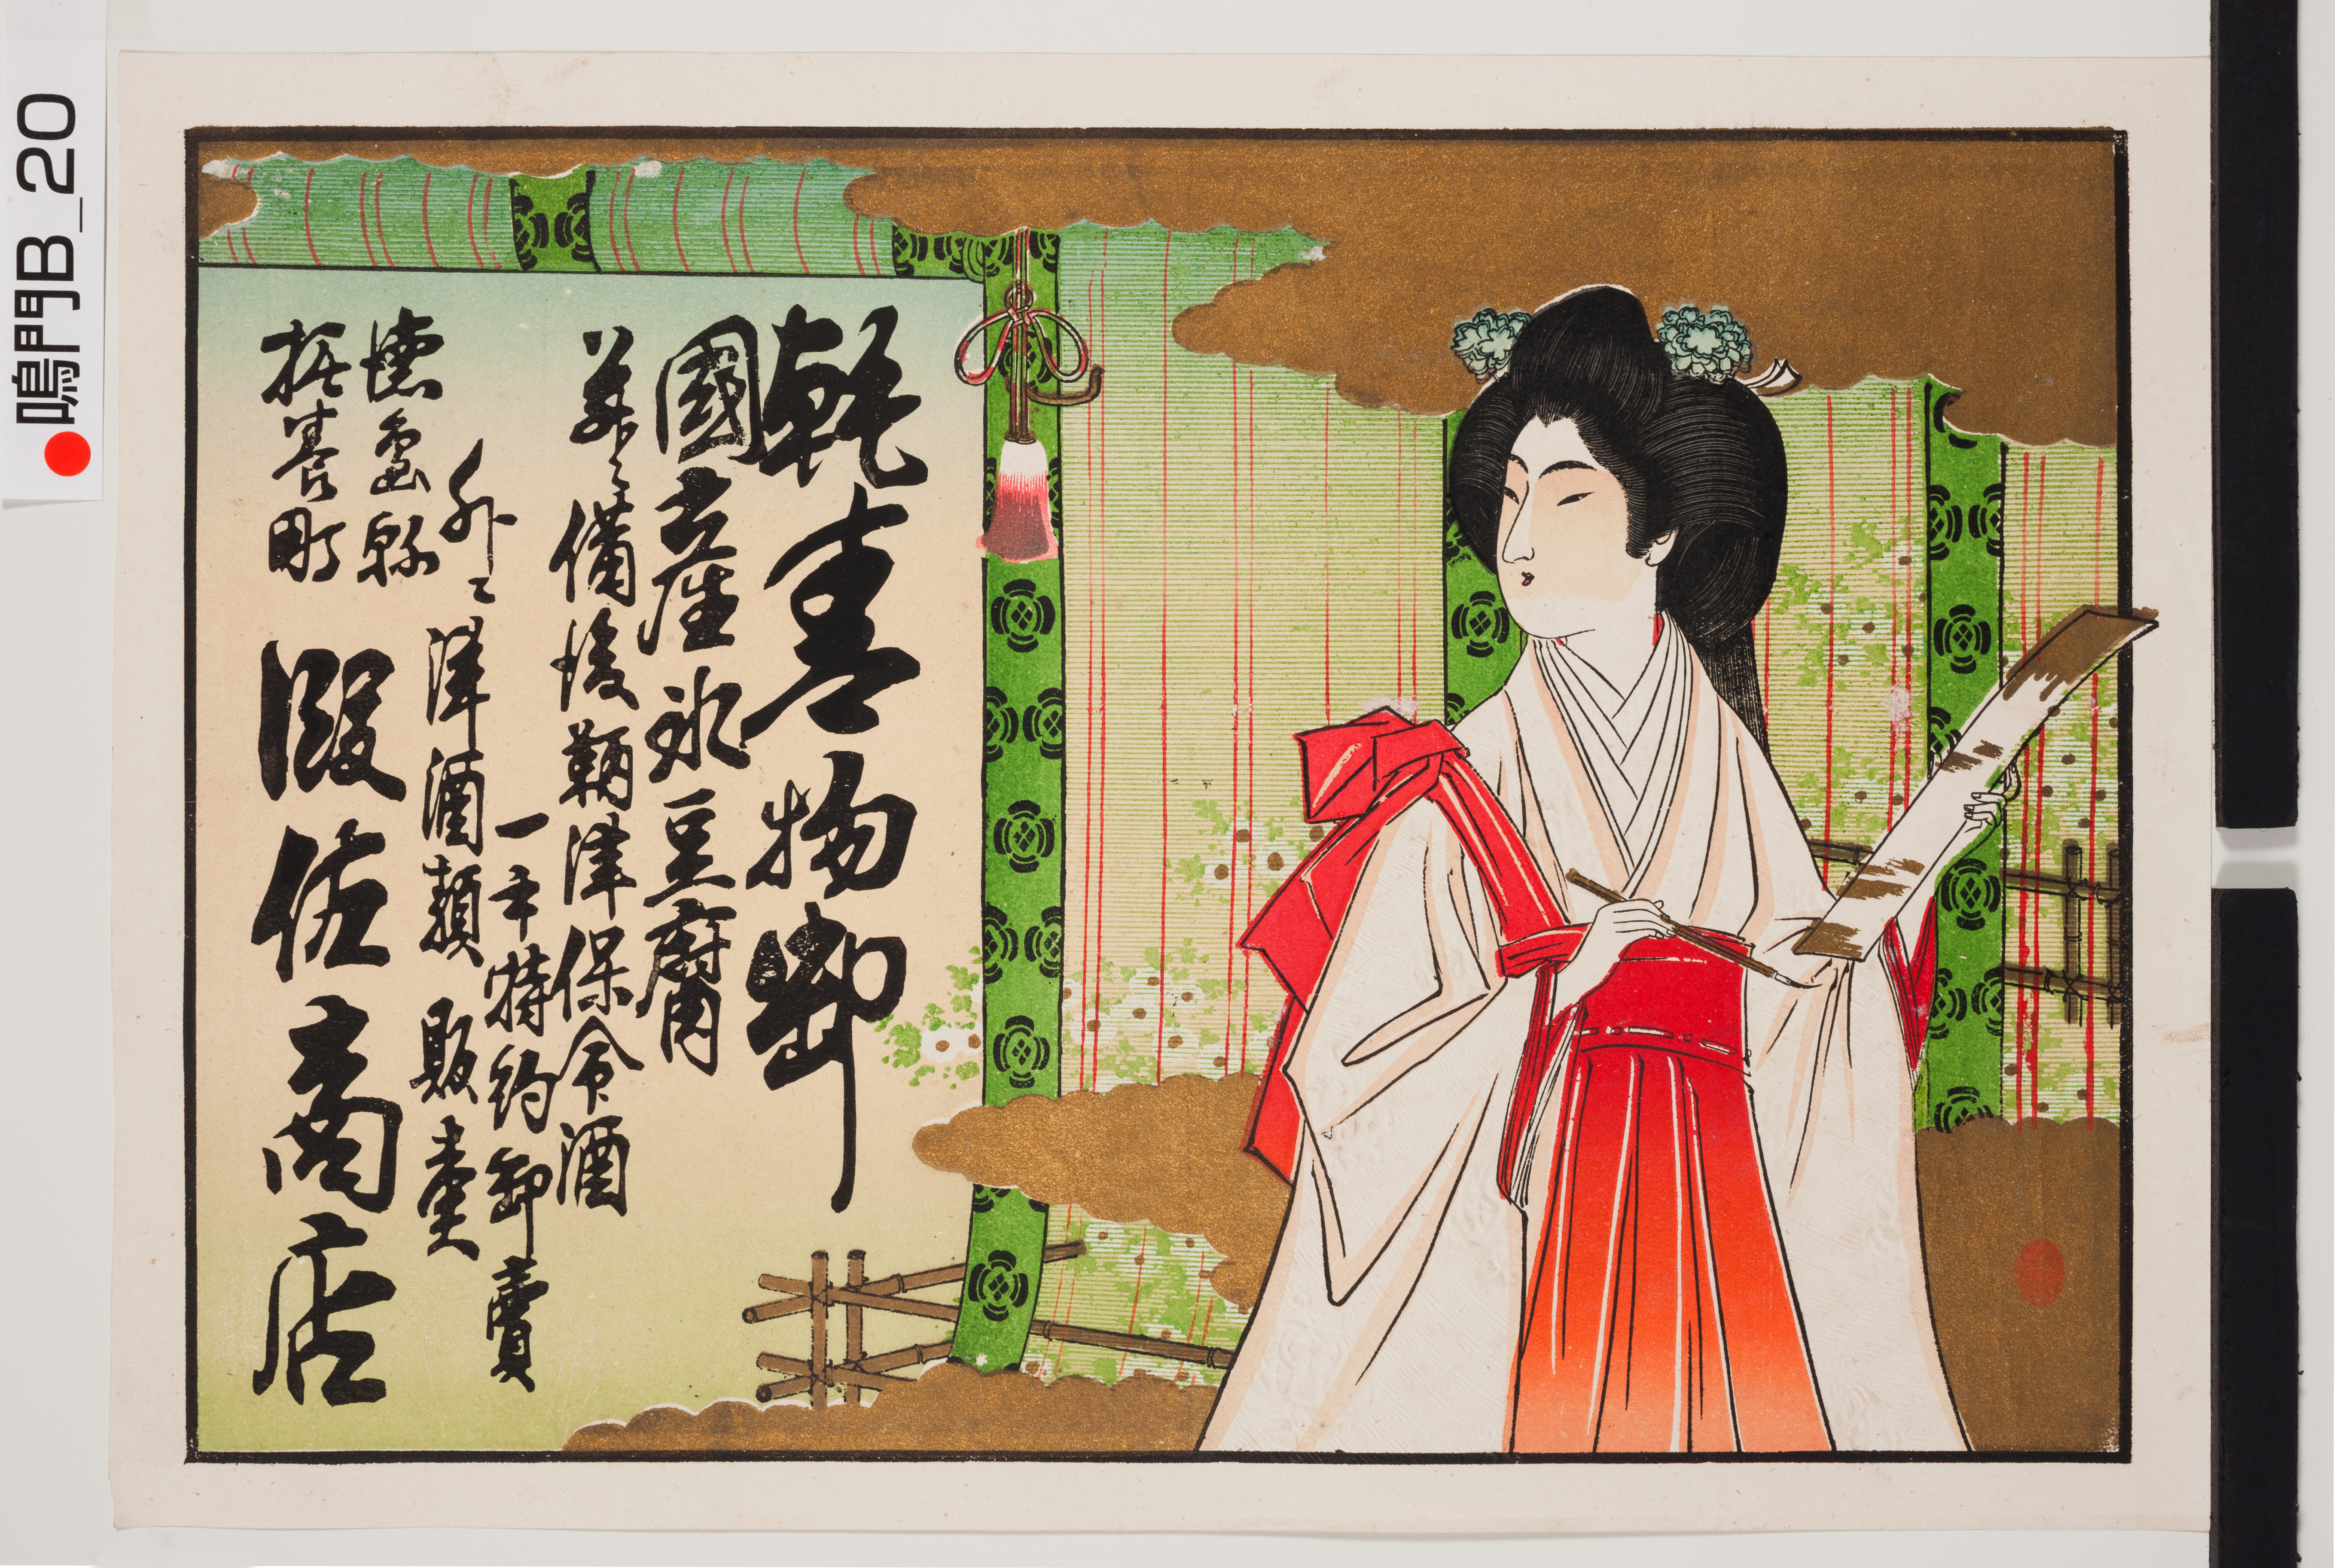 乾叓物卸
國産氷豆腐
並ニ備後鞆津保命酒
一手特約卸賣
外ニ洋酒類販賣
徳島縣
撫養町
阪佐商店
鳴門B_20